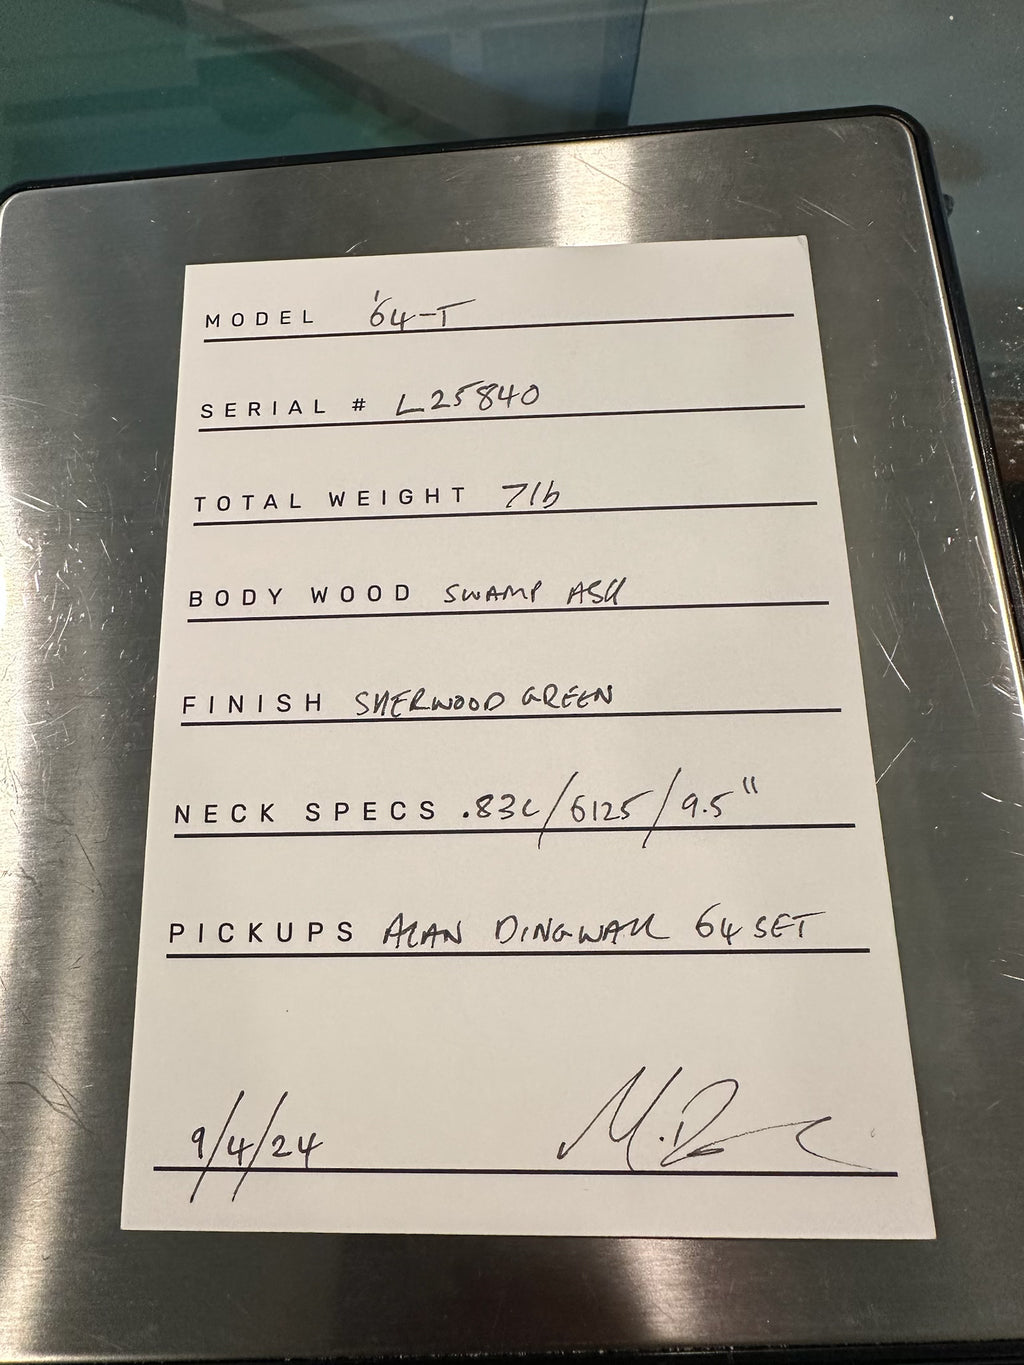 MODEL '64-T
SERIAL # L25840
TOTAL WEIGHT 7lb
BODY WOOD SWAMP ASH
FINISH SHERWOOD GREEN
NECK SPECS .83C/6125/9.5"
PICKUPS ALAN DINGWALL 64 SET
9/4/24